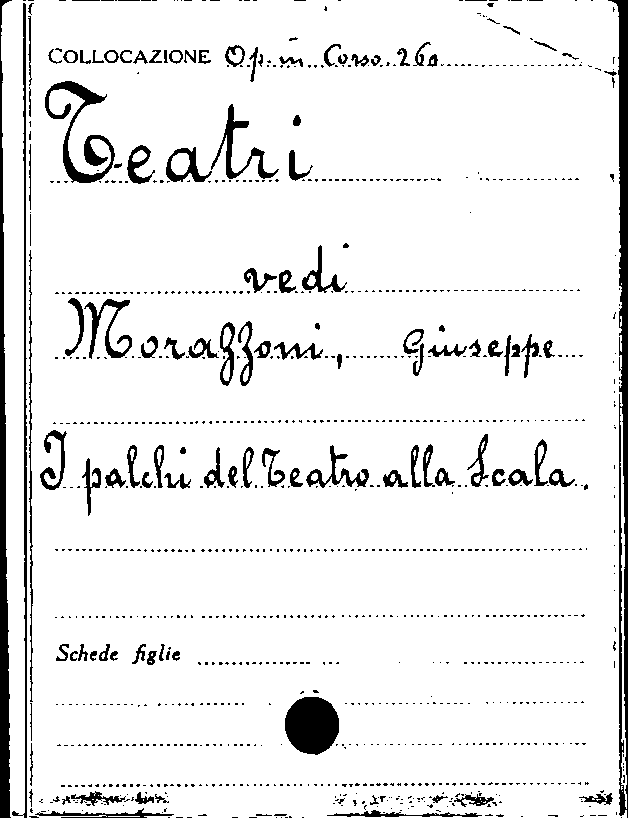 COLLOCAZIONE Op. in Corso 260
Teatri
vedi
Morazzoni, Giuseppe
I palchi del Teatro alla Scala.
Schede figlie